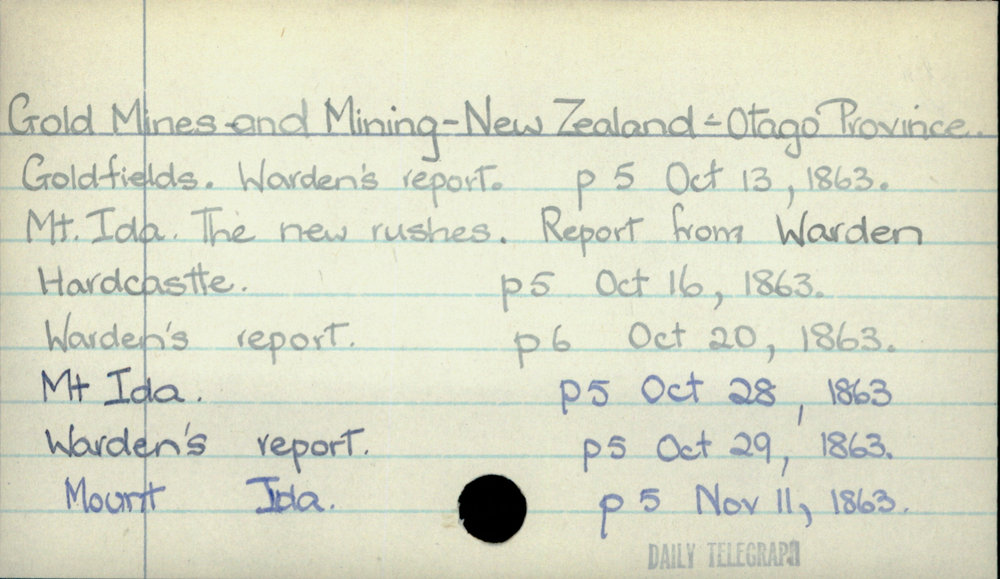 Gold Mines and Mining - New Zealand - Otago Province.
Goldfields. Warden's report. p 5 Oct 13, 1863.
Mt. Ida. The new rushes. Report from Warden
Hardcastle. p5 Oct 16, 1863.
Warden's report. p 6 Oct 20, 1863.
Mt Ida. p5 Oct 28, 1863
Warden's report. p5 Oct 29, 1863.
Mount Ida. p 5 Nov 11, 1863.
DAILY TELEGRAPH